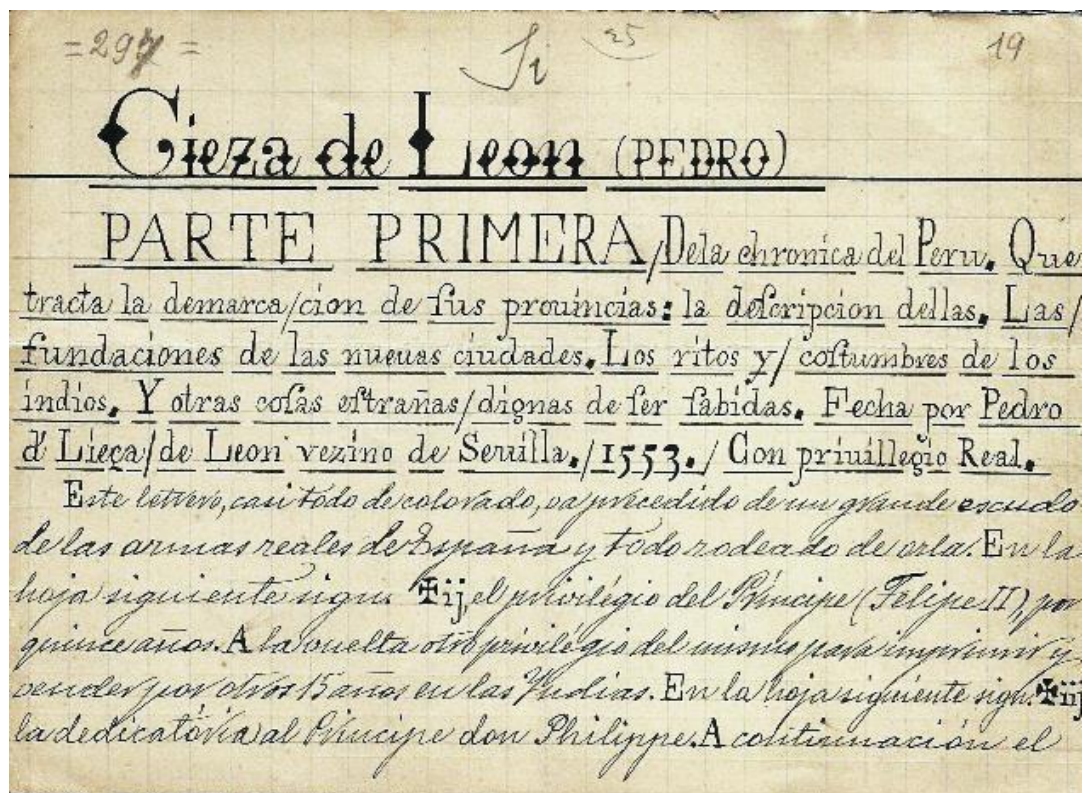 =297= Si 25 19
Cieza de Leon (PEDRO)
PARTE PRIMERA/Dela chronica del Peru. Que
tracta la demarca/cion de ſus prouincias: la deſcripcion dellas. Las/
fundaciones de las nueuas ciudades. Los ritos y/ coſtumbres de los
indios. Y otras coſas eſtrañas/dignas de ſer ſabidas. Fecha por Pedro
d' Lieça/de Leon vezino de Seuilla./1553./ Con priuillegio Real.
Este letrero, casi todo de colorado, va precedido de un grande escudo
de las armas reales de España y todo rodeado de orla. En la
hoja siguiente sign. ✠ij, el privilégio del Príncipe (Felipe II), por
quince años. A la vuelta otro privilégio del mismo para imprimir y
vender por otros 15 años en las Yndias. En la hoja siguiente sign. ✠iij
la dedicatória al Príncipe don Philippe. A continuación el